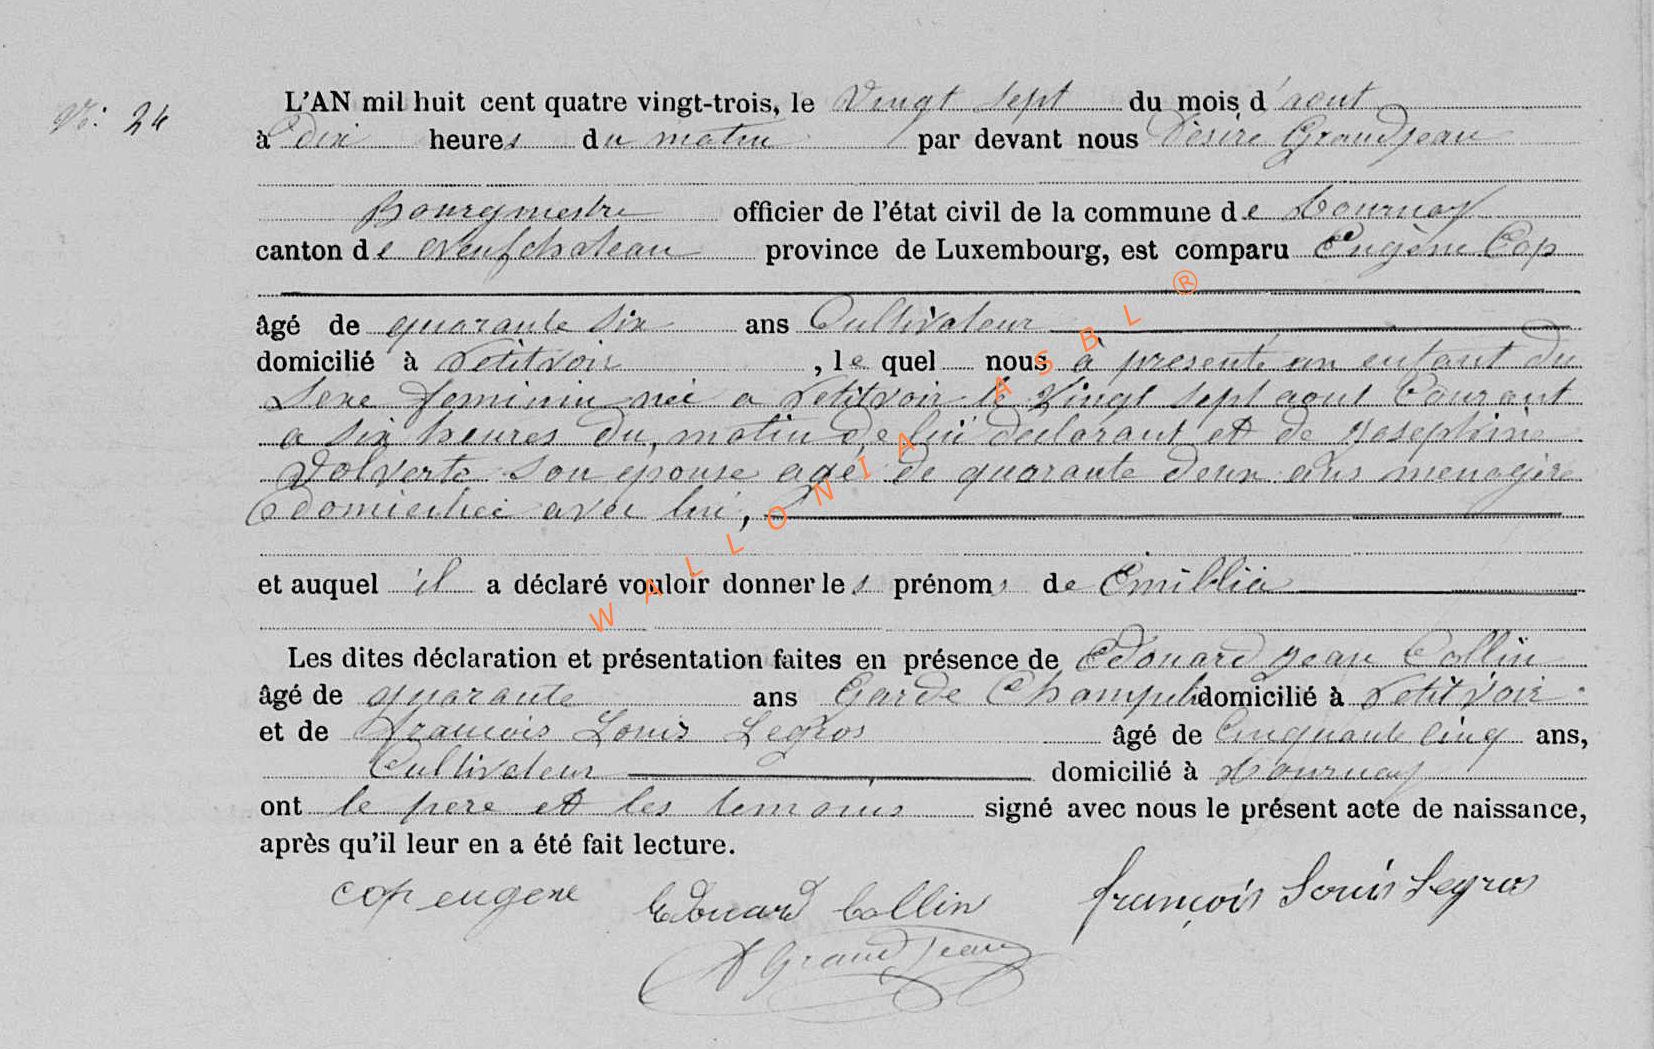 N°. 24
L'AN mil huit cent quatre vingt-trois, le Vingt sept du mois d'aout
à dix heures du matin par devant nous Désiré Grandjean
Bourgmestre officier de l'état civil de la commune de Tournay
canton de Neufchateau province de Luxembourg, est comparu Eugène Cop
âgé de quarante six ans Cultivateur
domicilié à Petitvoir, le quel nous a présenté un enfant du
Sexe feminin née a Petitvoir le Vingt sept aout Courant
a six heures du matin de lui declarant et de Josephine
Volverte son épouse agé de quarante deux ans menagère
domiciliée avec lui,
et auquel il a déclaré vouloir donner les prénoms de Emiblia
Les dites déclaration et présentation faites en présence de Edouard Jean Collin
âgé de quarante ans Garde Champetre domicilié à Petitvoir
et de Francois Louis Legros âgé de Cinquante cinq ans,
Cultivateur domicilié à Tournay
ont le pere et les temoins signé avec nous le présent acte de naissance,
après qu'il leur en a été fait lecture.
cop eugene Edouard Collin françois Louis Legros
D Grandjean
WALLONIA ASBL ®